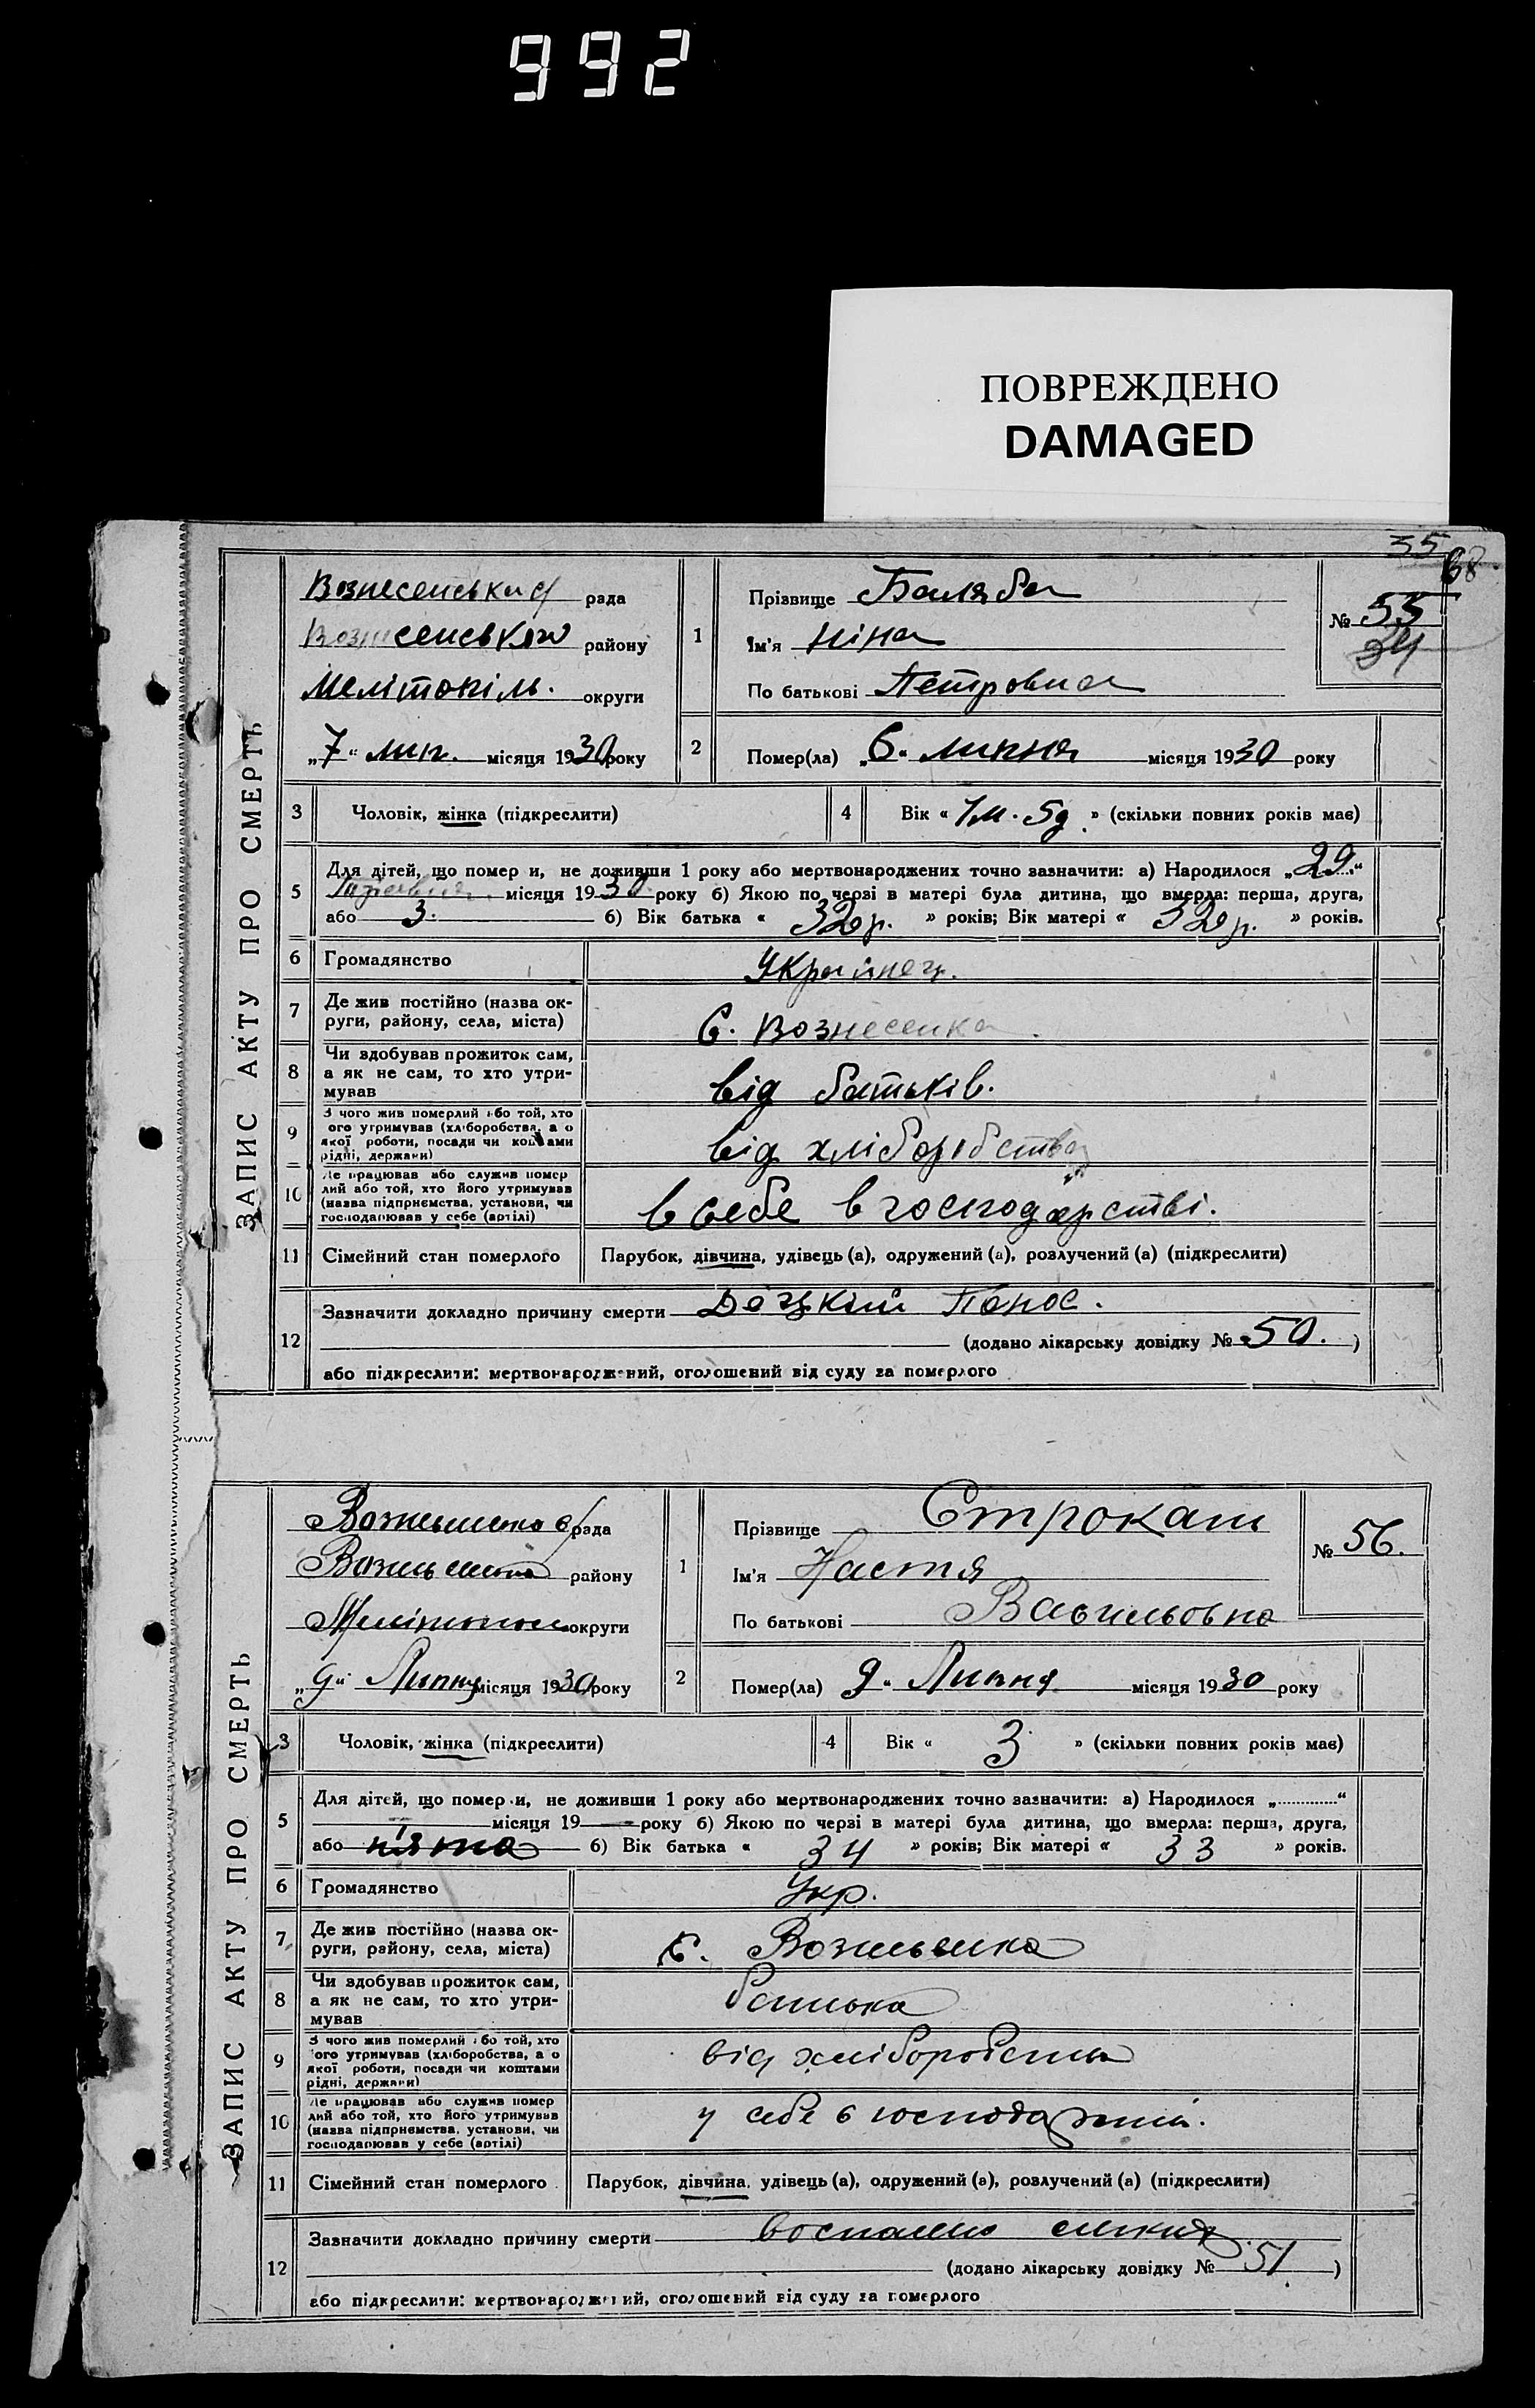 992
ПОВРЕЖДЕНО
DAMAGED
35
68
ЗАПИС АКТУ ПРО СМЕРТЬ
Вознесенська рада
Вознесенськ району
Мелітопіль. округи
„7“ лип. місяця 1930 року
1 Прізвище Баляба
Ім'я Ніна
По батькові Петровна
№ 55
34
2 Помер(ла) „6“ липня місяця 1930 року
3 Чоловік, жінка (підкреслити)
4 Вік « 1 м. 5 д. » (скільки повних років має)
5 Для дітей, що помер и, не доживши 1 року або мертвонароджених точно зазначити: а) Народилося „29“
місяця 1930 року б) Якою по черзі в матері була дитина, що вмерла: перша, друга,
або 3. б) Вік батька « 32 р. » років; Вік матері « 32 р. » років.
6 Громадянство Українец.
7 Де жив постійно (назва ок-
руги, району, села, міста) С. Вознесенка
8 Чи здобував прожиток сам,
а як не сам, то хто утри-
мував від батьків.
9 З чого жив померлий або той, хто
ого утримував (хліборобства, а о
якої роботи, посади чи коштами
рідні, держави) від хліборобства
10 Де працював або служив помер
лий або той, хто його утримував
(назва підприємства, установи, чи
господарював у себе (артілі) в себе в господарстві.
11 Сімейний стан померлого Парубок, дівчина, удівець (а), одружений (а), розлучений (а) (підкреслити)
12 Зазначити докладно причину смерти Децкий Понос.
(додано лікарську довідку № 50. )
або підкреслити: мертвонароджений, оголошений від суду за померлого
ЗАПИС АКТУ ПРО СМЕРТЬ
рада
району
округи
„9“ Липня місяця 1930 року
1 Прізвище Строкат
Ім'я Настя
По батькові Васильовна
№ 56.
2 Помер(ла) 9“ Липня місяця 1930 року
3 Чоловік, жінка (підкреслити)
4 Вік « 3 » (скільки повних років має)
5 Для дітей, що помер и, не доживши 1 року або мертвонароджених точно зазначити: а) Народилося „.............“
місяця 19 року б) Якою по черзі в матері була дитина, що вмерла: перша, друга,
або п'ята б) Вік батька « 34 » років; Вік матері « 33 » років.
6 Громадянство Укр.
7 Де жив постійно (назва ок-
руги, району, села, міста) С.
8 Чи здобував прожиток сам,
а як не сам, то хто утри-
мував батька
9 З чого жив померлий або той, хто
ого утримував (хліборобства, а о
якої роботи, посади чи коштами
рідні, держави) від хліборобства
10 Де працював або служив помер
лий або той, хто його утримував
(назва підприємства, установи, чи
господарював у себе (артілі) у себе в
11 Сімейний стан померлого Парубок, дівчина, удівець (а), одружений (а), розлучений (а) (підкреслити)
12 Зазначити докладно причину смерти
(додано лікарську довідку № 51 )
або підкреслити: мертвонароджений, оголошений від суду за померлого